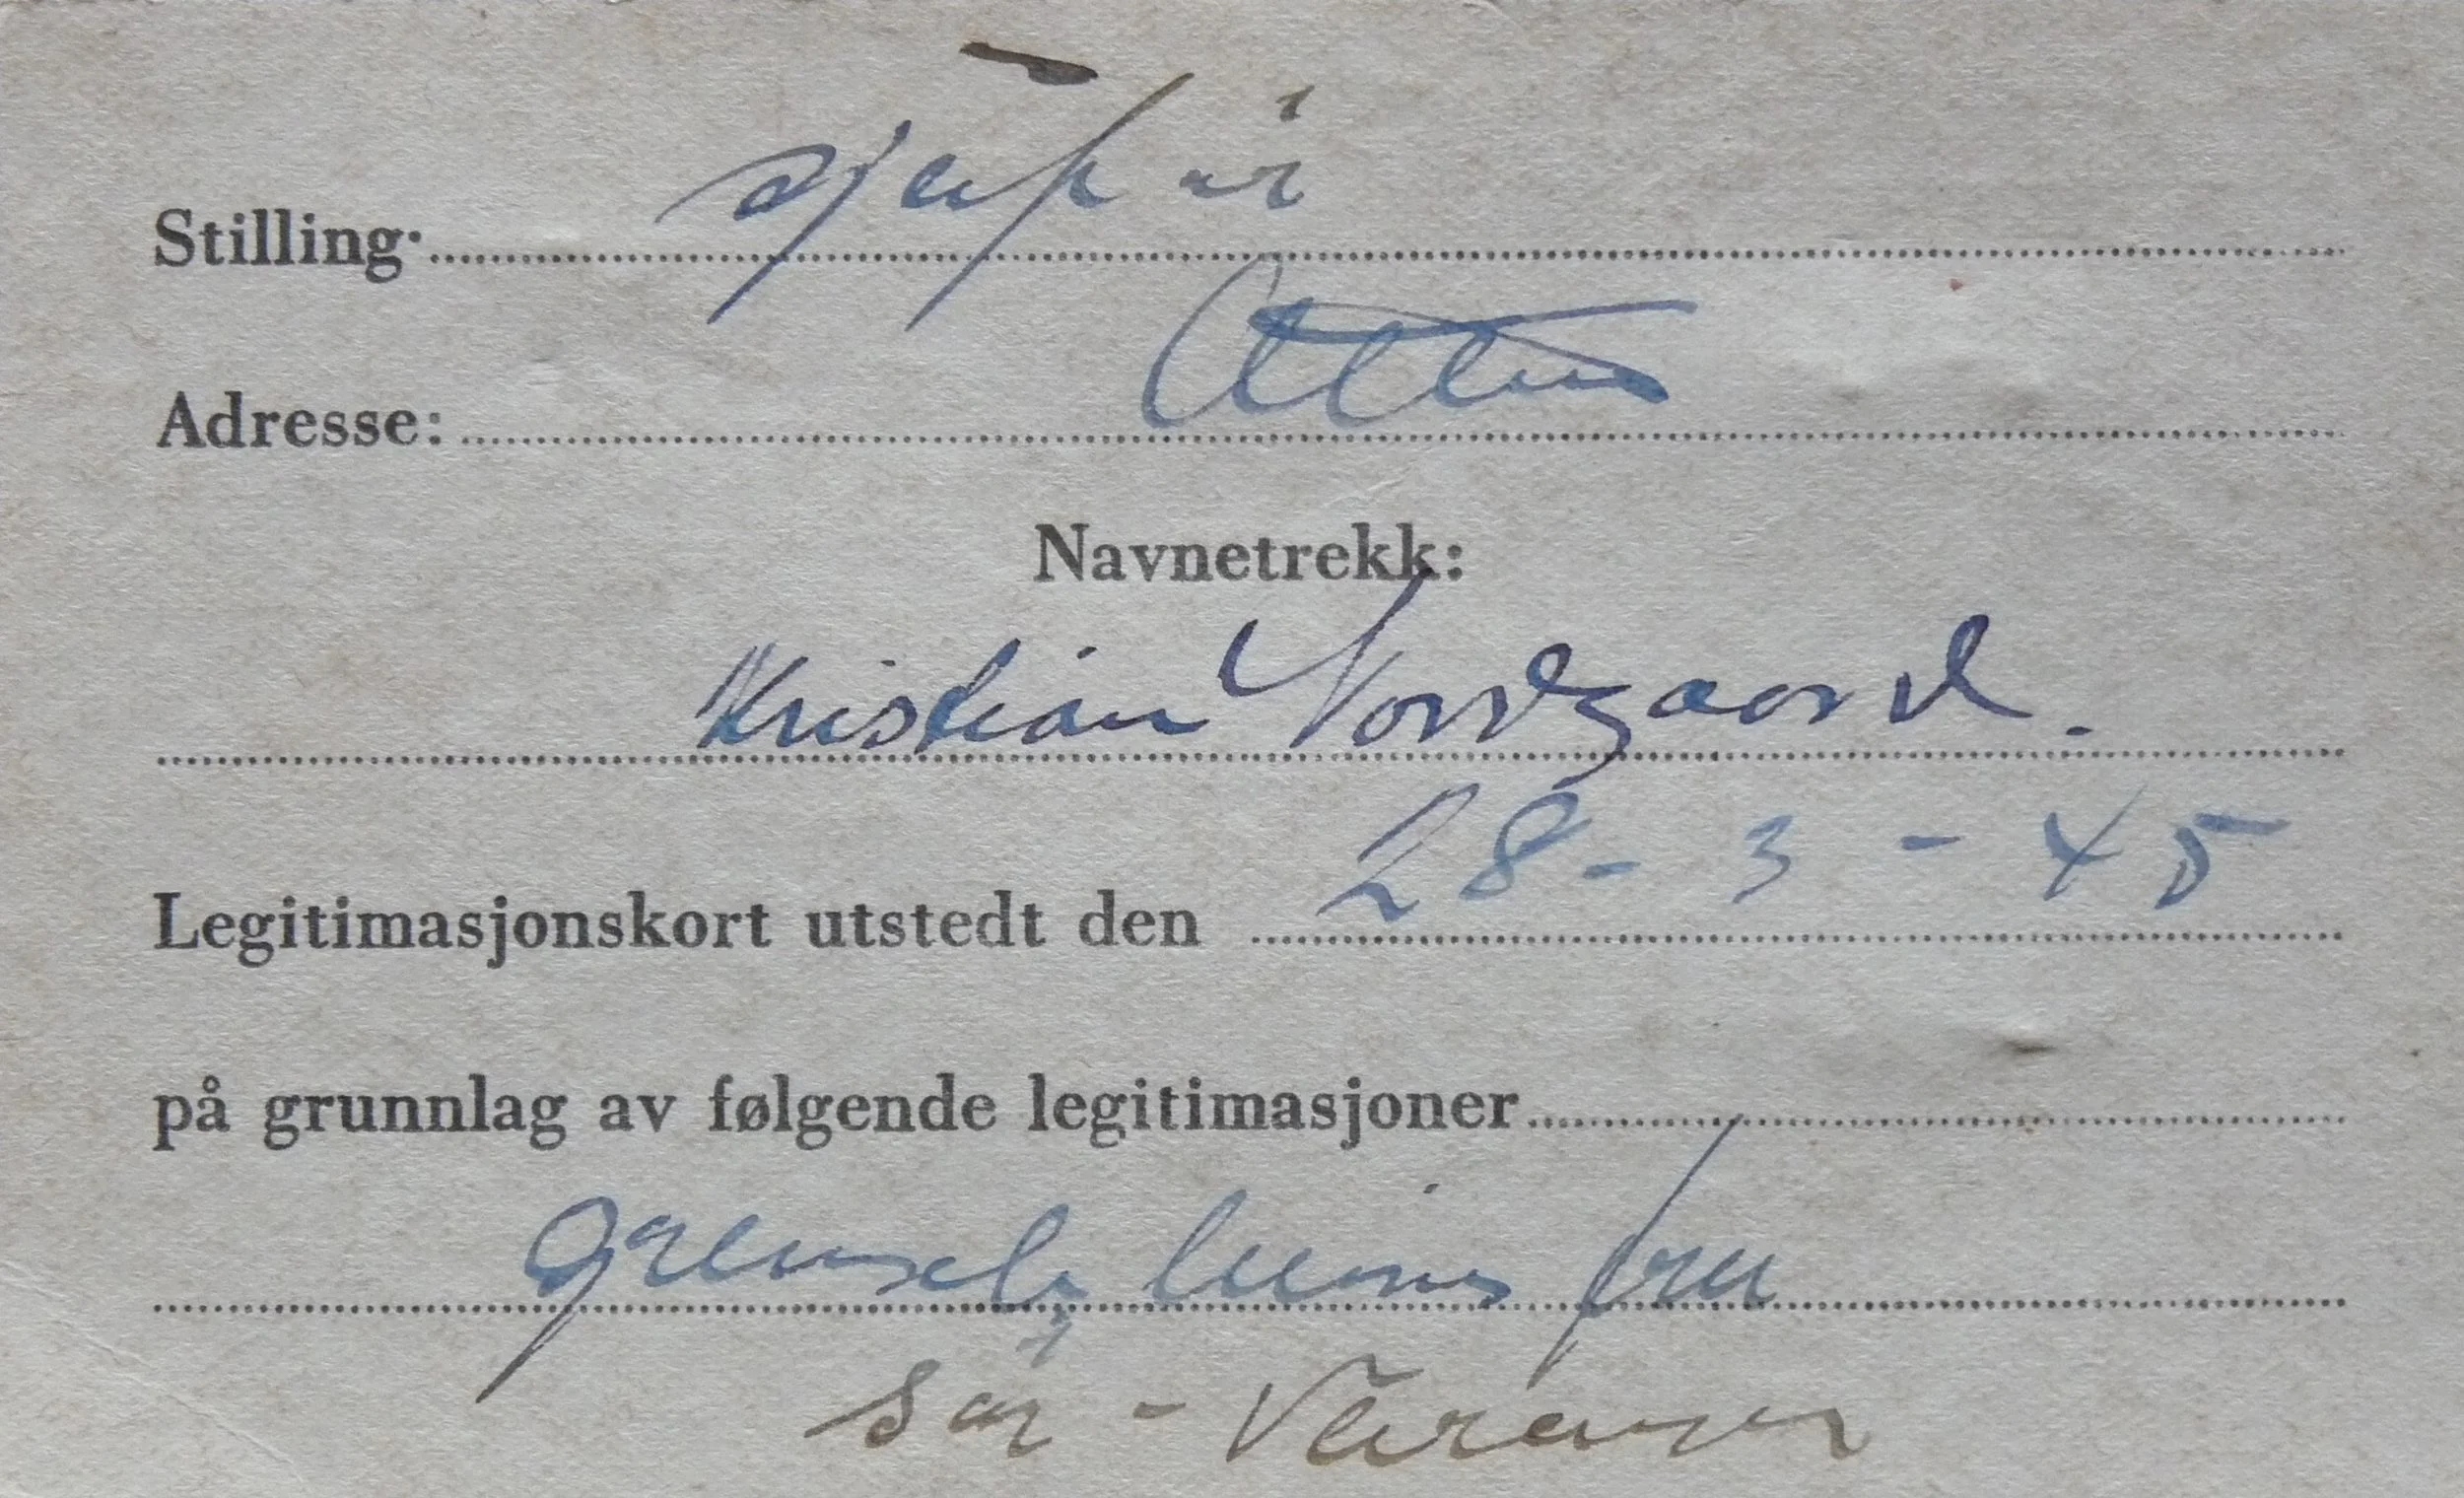 Stilling: sjåfør
Adresse: Alta
Navnetrekk:
Kristian Nordgaard.
Legitimasjonskort utstedt den 28-3-45
på grunnlag av følgende legitimasjoner
fra
Sør-Varanger